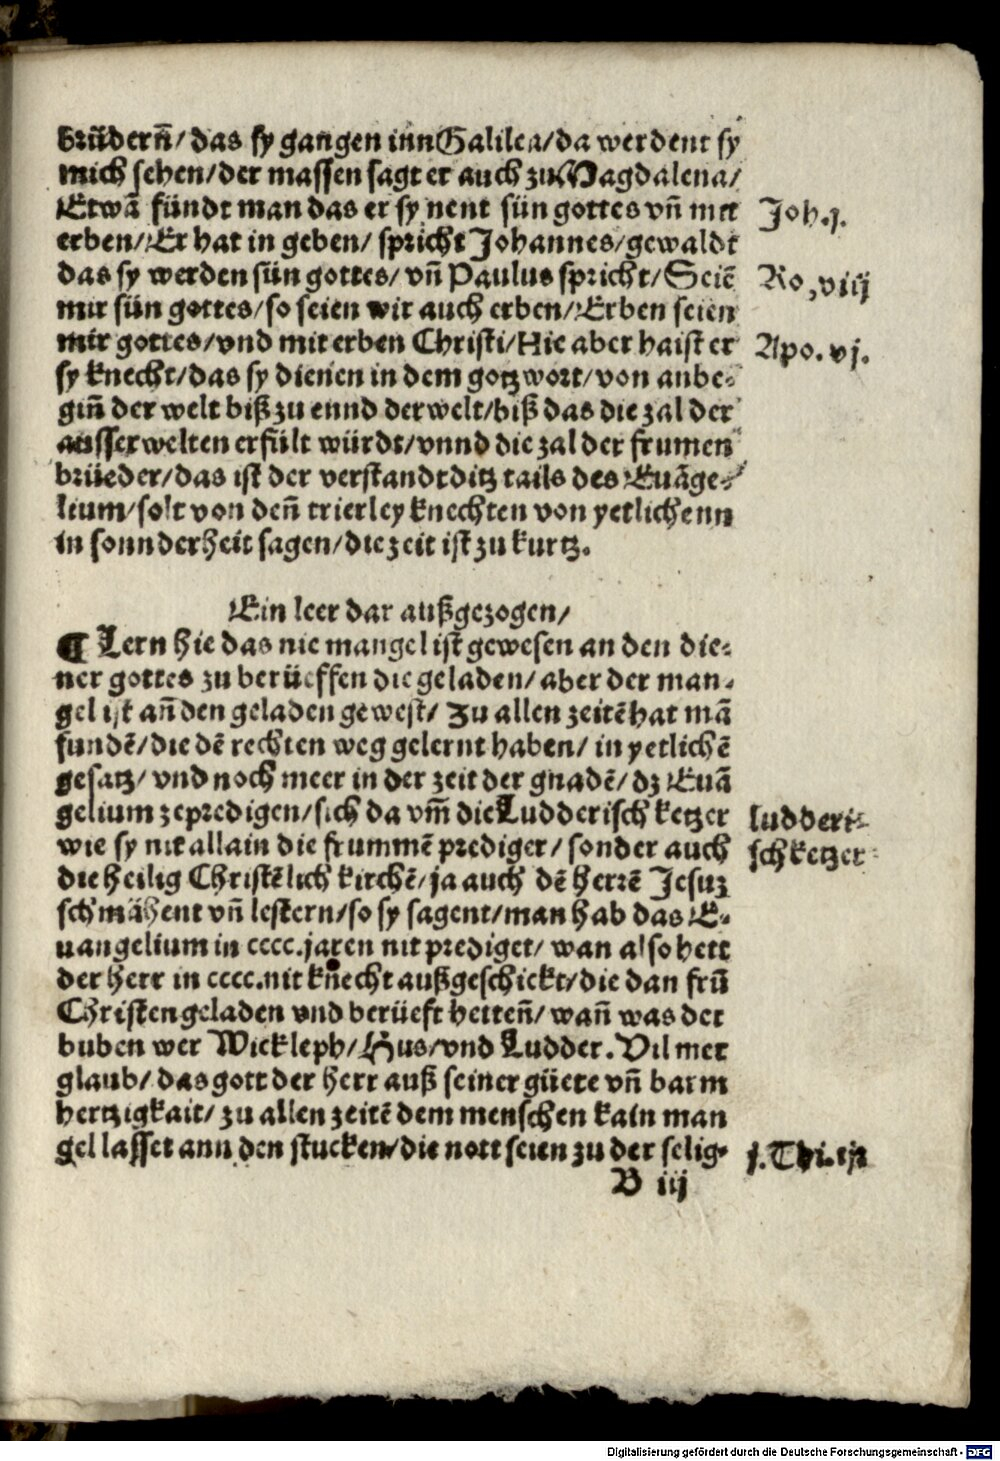 brüdern̄/ das sy gangen inn Galilea/ da werdent sy
mich sehen/ der massen sagt er auch zu Magdalena/
Etwā fündt man das er sy nent sün gottes vn̄ mit
Joh.j.
erben/ Er hat in geben/ spricht Johannes/ gewaldt
das sy werden sün gottes/ vn̄ Paulus spricht/ Seiē
Ro,viij
mir sün gottes/ so seien wir auch erben/ Erben seien
mir gottes/ vnd mit erben Christi/ Hie aber haist er
Apo.vj.
sy knecht/ das sy dienen in dem gotzwort/ von anbe⸗
gin̄ der welt biß zu ennd der welt/ biß das die zal der
ausserwelten erfült würdt/ vnnd die zal der frumen
brüeder/ das ist der verstandt ditz tails des Euāge⸗
lium/ solt von den̄ trierley knechten von yetlichenn
in sonnderheit sagen/ die zeit ist zu kurtz.
Ein leer dar außgezogen/
¶ Lern hie das nie mangel ist gewesen an den die⸗
ner gottes zu berüeffen die geladen/ aber der man⸗
gel ist an̄ den geladen gewest/ Zu allen zeitē hat mā
fundē/ die dē rechten weg gelernt haben/ in yetlichē
gesatz/ vnd noch meer in der zeit der gnadē/ dz Euā
gelium zepredigen/ sich da vm̄ die Ludderisch ketzer
ludderi⸗
wie sy nit allain die frummē prediger/ sonder auch
sch ketzer
die heilig Christēlich kirchē/ ja auch dē herrē Jesuz
schmähent vn̄ lestern/ so sy sagent/ man hab das E⸗
uangelium in cccc.jaren nit prediget/ wan also hett
der herr in cccc.nit knecht außgeschickt/ die dan frū
Christen geladen vnd berüeft hetten̄/ wan̄ was der
buben wer Wickleph/ Hus/ vnd Ludder. Vil mer
glaub/ das gott der herr auß seiner güete vn̄ barm
hertzigkait/ zu allen zeitē dem menschen kain man
gel lasset ann den stucken/ die nott seien zu der selig⸗
j.Thi.ij
B iij
Digitalisierung gefördert durch die Deutsche Forschungsgemeinschaft - DFG